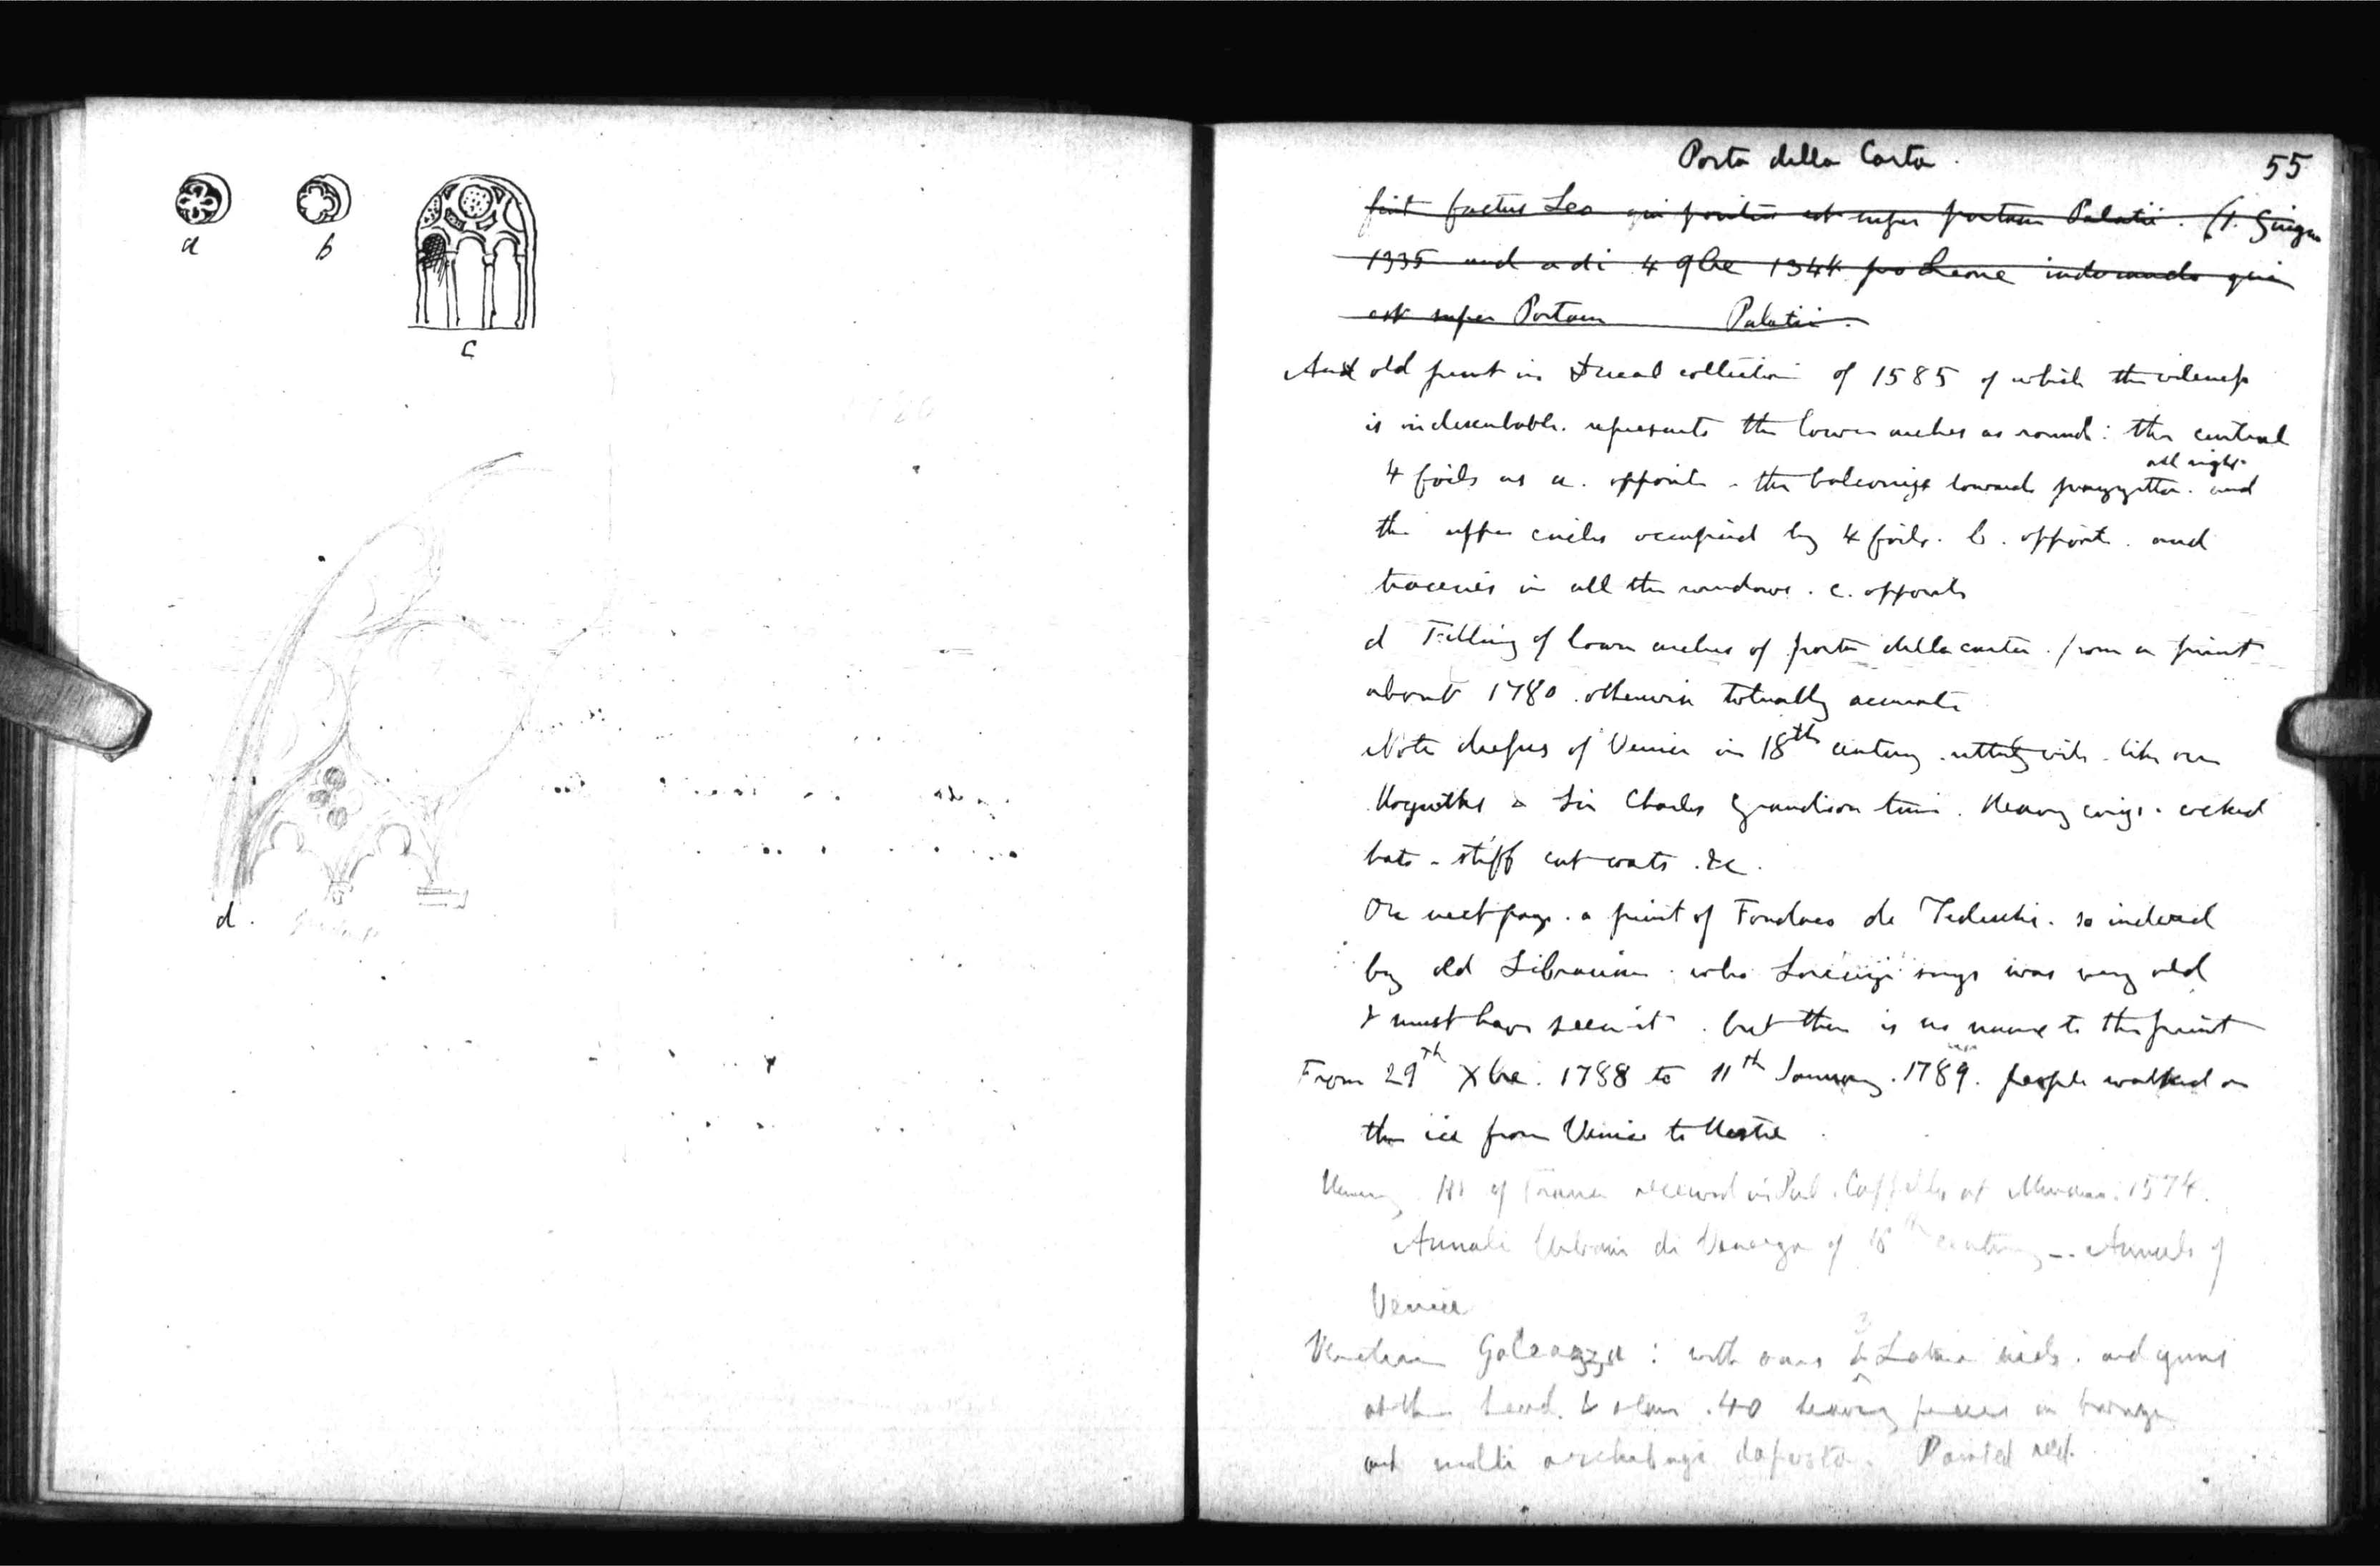 a
b
c
d.
Porta della Carta.
55
fuit factus Leo qui positus est super portam Palatii. (1. Giugno
1335 and a di 4 9bre 1344 pro Leone indorando qui
est super Portam Palatii.
And old print in Ducal collection of 1585 of which the vileness
is indescribable. represents the lower arches as round: the central
4 foils as a. opposite - the balconies towards piazzetta. all right. and
the upper circles occupied by 4 foils. b. opposite. and
traceries in all the windows. c. opposite
d Filling of lower arches of porta della carta. from a print
about 1780. otherwise tolerably accurate
Note dresses of Venice in 18th century. utterly vile. like our
Hogarths & Sir Charles Grandison time. Heavy wigs. cocked
hats - stiff cut coats. &c.
On next page. a print of Fondaco de Tedeschi. so indexed
by old Librarian. who Lorenzi says was very old
& must have seen it. but there is no name to the print
From 29th Xbre. 1788 to 11th January. 1789. people walked on
the ice from Venice to Mestre.
Henry III of France received in Pal. Cappello at Murano. 1574.
Annali Urbani di Venezia of 18th century -. Annals of
Venice
Venetian Galeazza: with oars & 3 Latin sails. and guns
at the head. & stern. 40 heavy pieces in bronze
and molti archebugi da posta. Painted red.